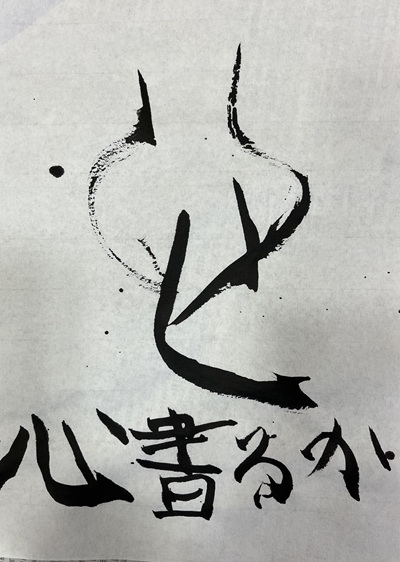 心書るか